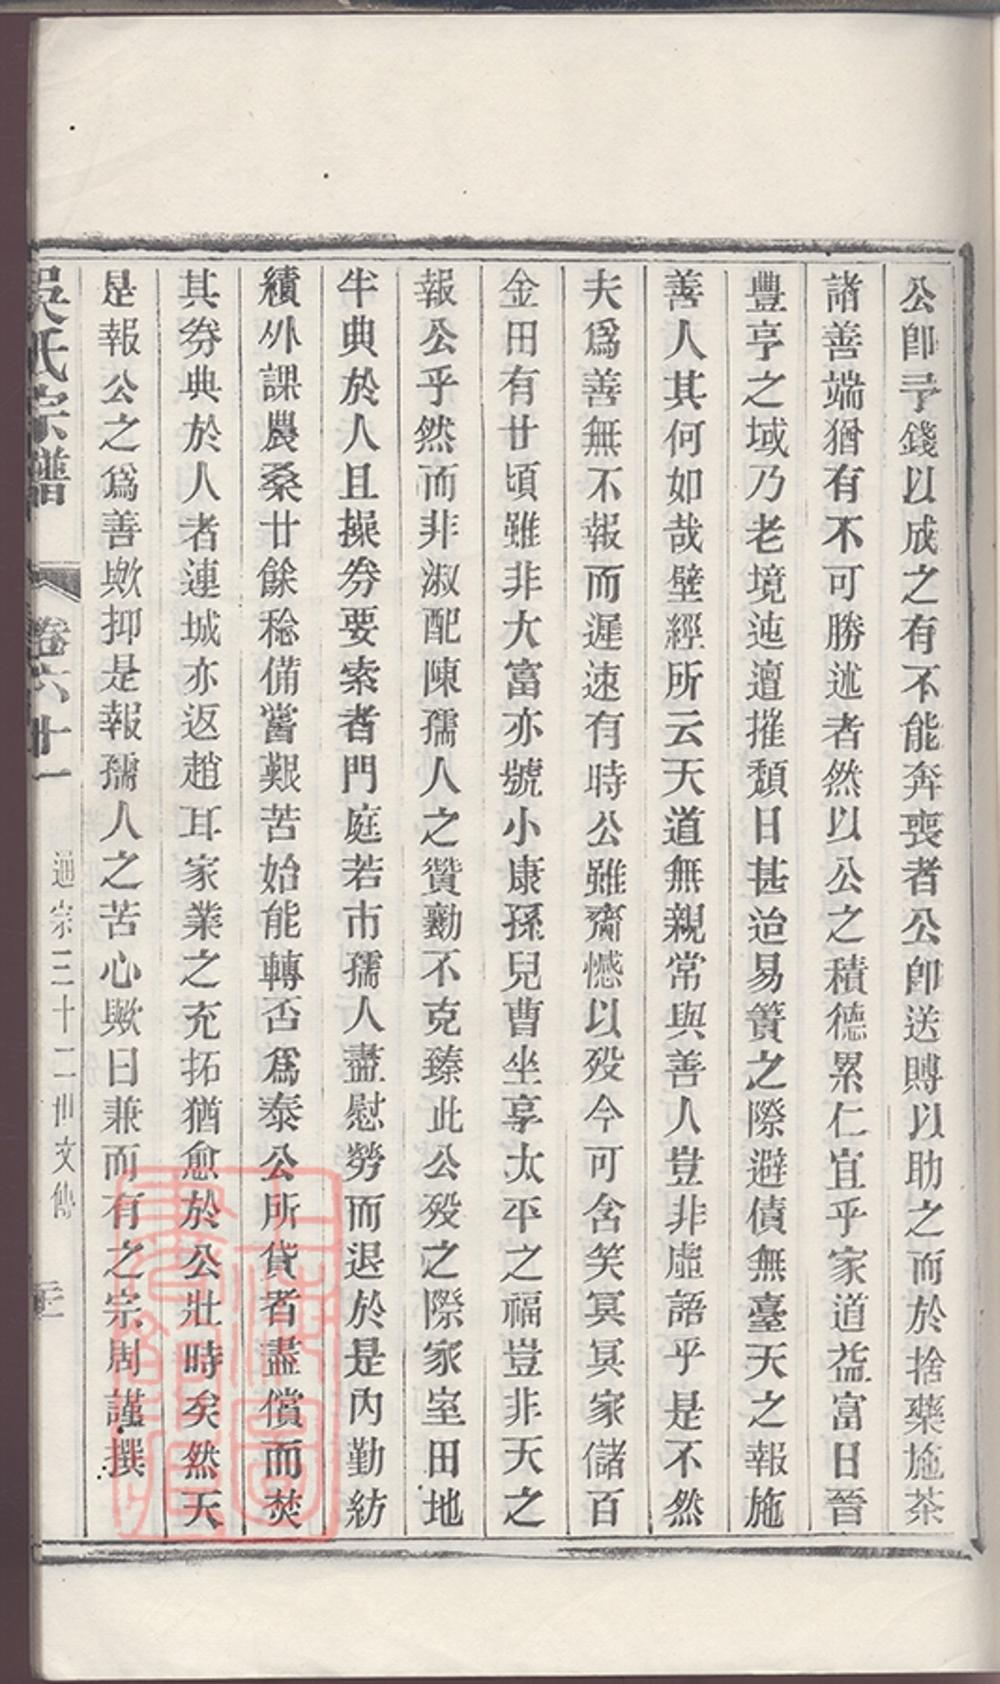 公卽予錢以成之有不能奔喪者公卽送賻以助之而於捨藥施茶
諸善端猶有不可勝述者然以公之積德累仁宜乎家道益富日晉
豐亨之域乃老境迍邅摧頽日甚迨易簀之際避債無臺天之報施
善人其何如哉壁經所云天道無親常與善人豈非虛語乎是不然
夫爲善無不報而遲速有時公雖齎憾以歿今可含笑冥冥家儲百
金田有廿頃雖非大富亦號小康孫兒曹坐享太平之福豈非天之
報公乎然而非淑配陳孺人之贊勷不克臻此公歿之際家室田地
牛典於人且操劵要索者門庭若市孺人盡慰勞而退於是內勤紡
績外課農桑廿餘稔備嘗艱苦始能轉否爲泰公所貸者盡償而焚
其劵典於人者連城亦返趙耳家業之充拓猶愈於公壯時矣然天
是報公之爲善歟抑是報孺人之苦心歟曰兼而有之宗周謹撰
吳氏宗譜
卷六十一
通宗三十二世文傳